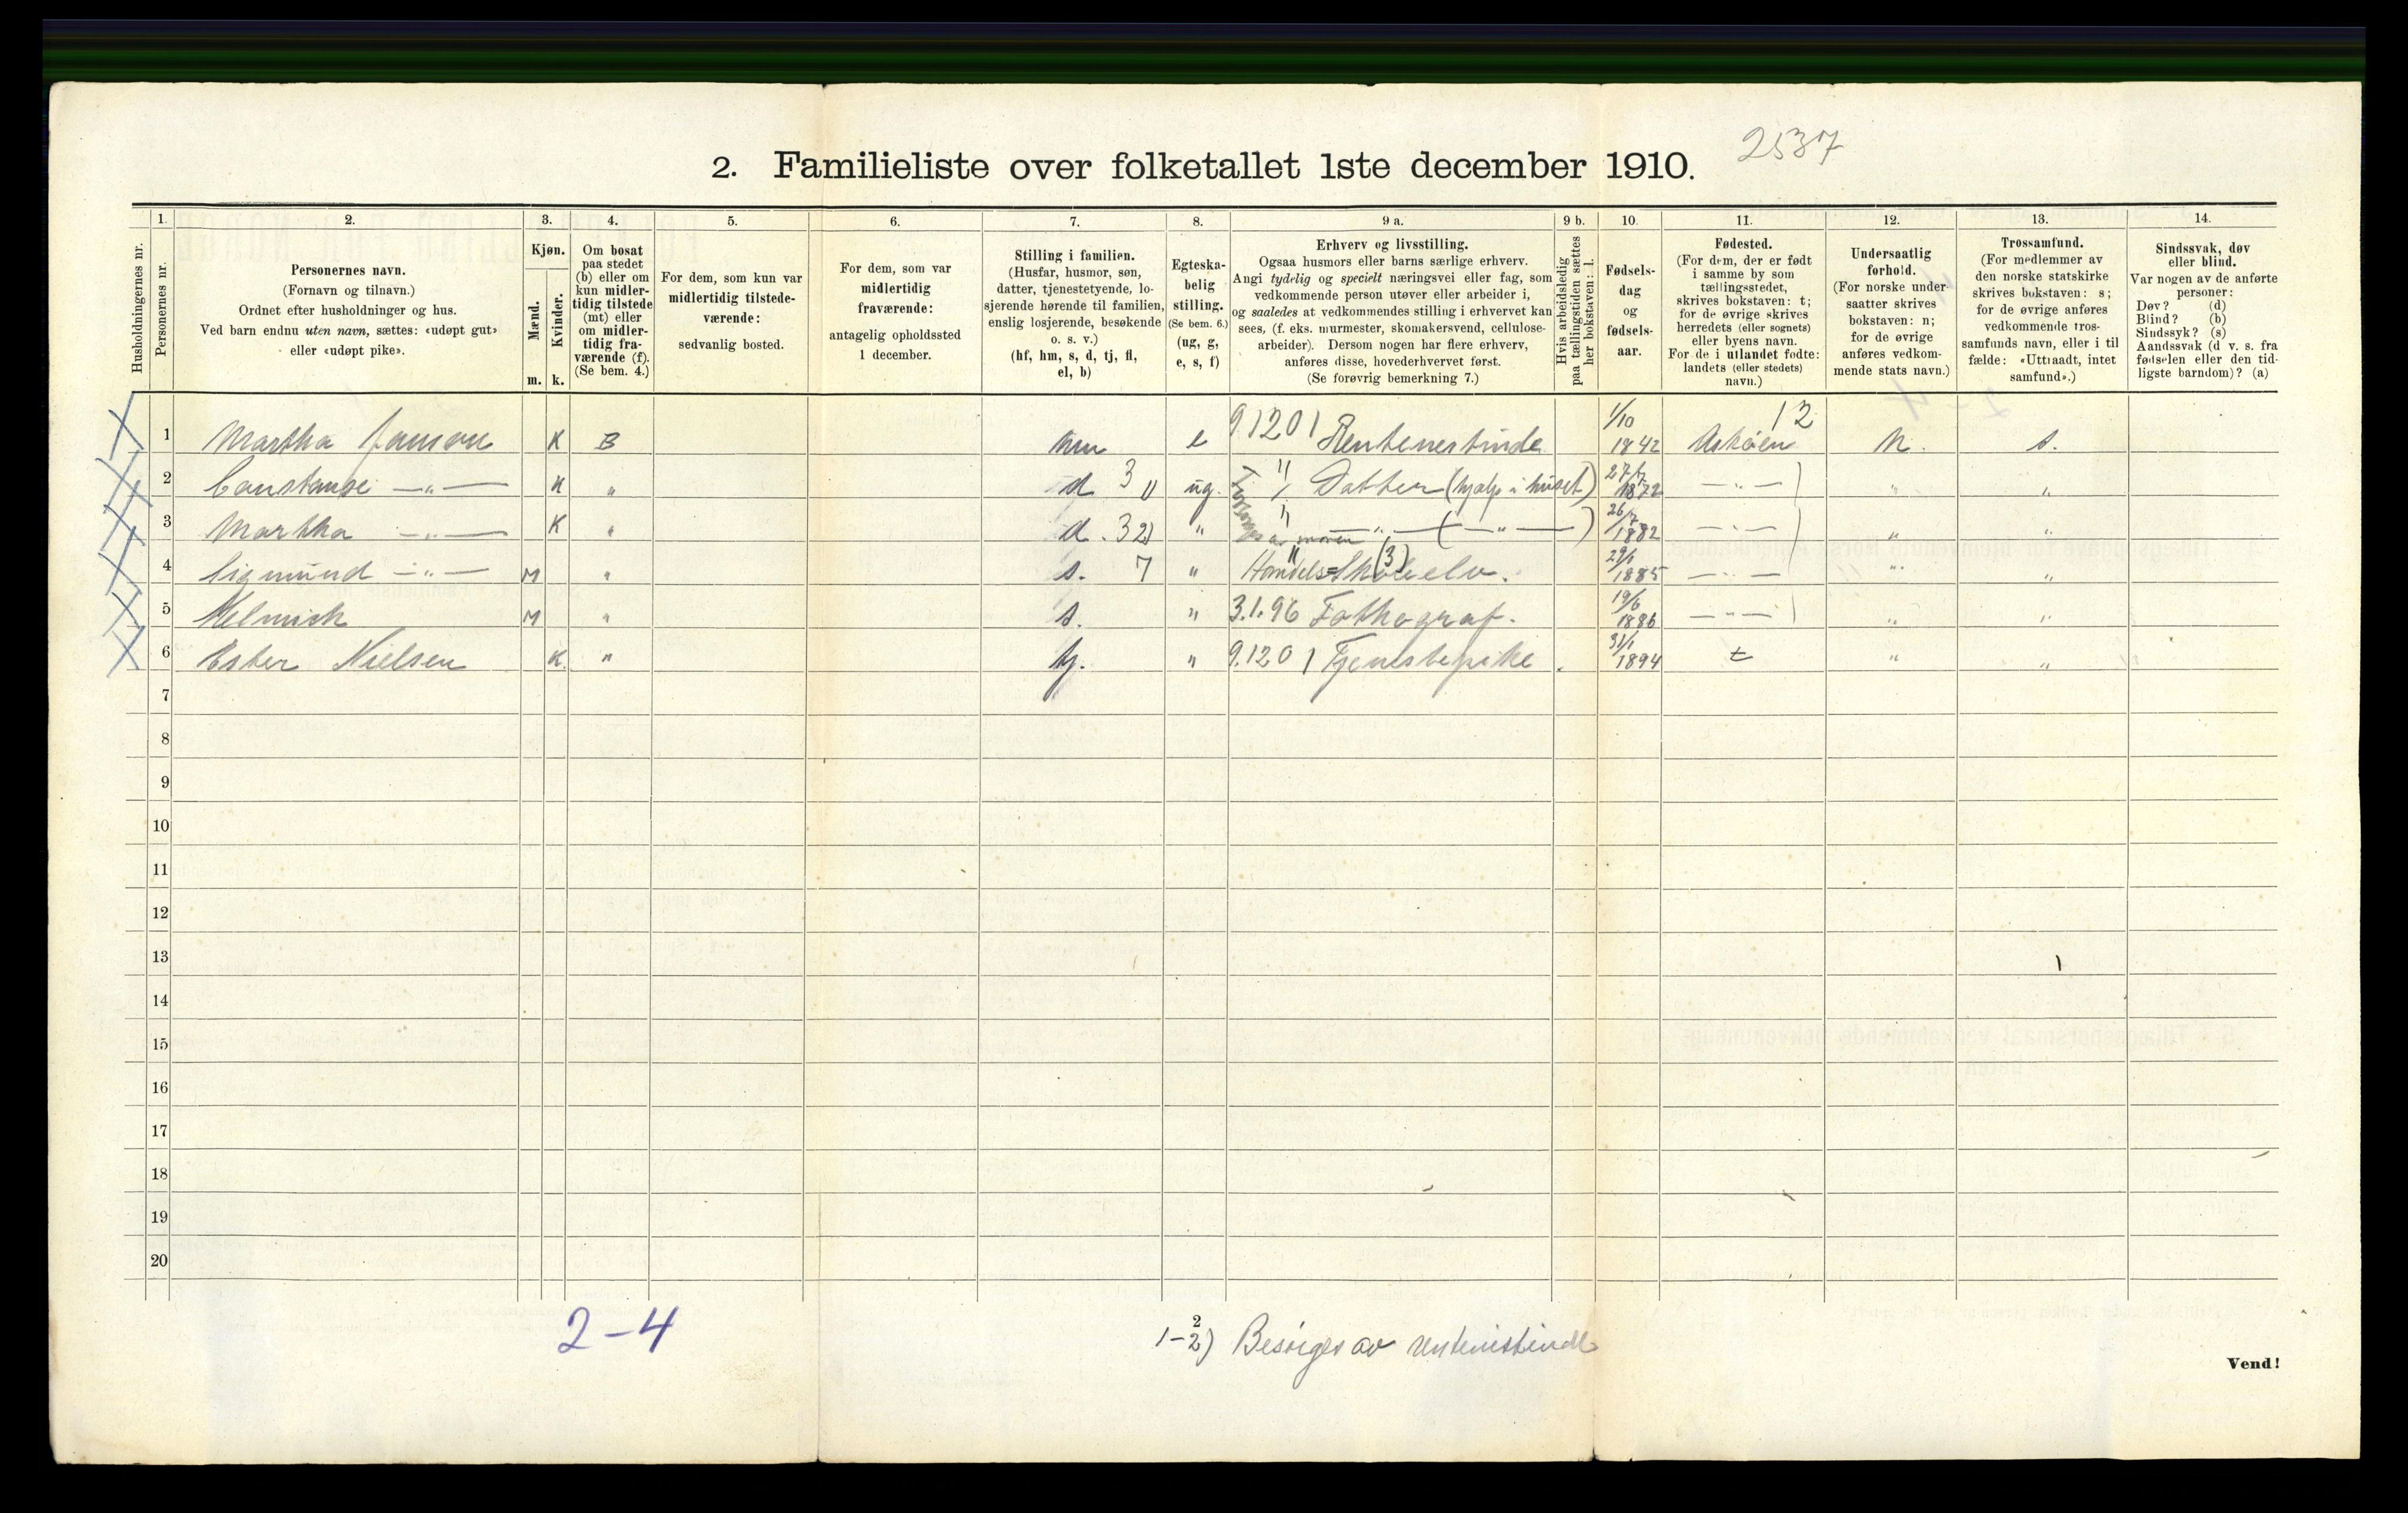 2537
2. Familieliste over folketallet 1ste december 1910.
Husholdningernes nr.
1. Personernes nr.
2. Personernes navn. (Fornavn og tilnavn.) Ordnet efter husholdninger og hus. Ved barn endnu uten navn, sættes: «udøpt gut» eller «udøpt pike».
3. Kjøn. Mænd. m. Kvinder. k.
4. Om bosat paa stedet (b) eller om kun midlertidig tilstede (mt) eller om midlertidig fraværende (f). (Se bem. 4.)
5. For dem, som kun var midlertidig tilstedeværende: sedvanlig bosted.
6. For dem, som var midlertidig fraværende: antagelig opholdssted 1 december.
7. Stilling i familien. (Husfar, husmor, søn, datter, tjenestetyende, losjerende hørende til familien, enslig losjerende, besøkende o. s. v.) (hf, hm, s, d, tj, fl, el, b)
8. Egteskabelig stilling. (Se bem. 6.) (ug, g, e, s, f)
9 a. Erhverv og livsstilling. Ogsaa husmors eller barns særlige erhverv. Angi tydelig og specielt næringsvei eller fag, som vedkommende person utøver eller arbeider i, og saaledes at vedkommendes stilling i erhvervet kan sees, (f. eks. murmester, skomakersvend, cellulosearbeider). Dersom nogen har flere erhverv, anføres disse, hovederhvervet først. (Se forøvrig bemerkning 7.)
9 b. Hvis arbeidsledig paa tællingstiden sættes her bokstaven: l.
10. Fødselsdag og fødselsaar.
11. Fødested. (For dem, der er født i samme by som tællingsstedet, skrives bokstaven: t; for de øvrige skrives herredets (eller sognets) eller byens navn. For de i utlandet fødte: landets (eller stedets) navn.)
12. Undersaatlig forhold. (For norske undersaatter skrives bokstaven: n; for de øvrige anføres vedkommende stats navn.)
13. Trossamfund. (For medlemmer av den norske statskirke skrives bokstaven: s; for de øvrige anføres vedkommende trossamfunds navn, eller i tilfælde: «Uttraadt, intet samfund».)
14. Sindssvak, døv eller blind. Var nogen av de anførte personer: Døv? (d) Blind? (b) Sindssyk? (s) Aandssvak (d v. s. fra fødselen eller den tidligste barndom)? (a)
1 Martha Janson K B hm e 9.1201 Rentenestinde 1/10 1842 Askøen 12 N. s.
2 Constanse —"— K " d 3 1) ug. " Datter (hjælp i huset) 27/7 1872 —"— " "
3 Martha —"— K " d. 3 2) " " —"— (—"—) 26/7 1882 —"— " "
4 Sigmund —"— M " s. 7 " Handels=Skoleelv. (3) 29/1 1885 —"— " "
5 Helmich M " s. " 3.1.96 Fothograf. 19/6 1886 —"— " "
6 Ester Nielsen K " tj. " 9.1201 Tjenestepike. 31/1 1894 t " "
7
8
9
10
11
12
13
14
15
16
17
18
19
20
2-4
1-2/2) Besørges av rentenistinde
Vend!